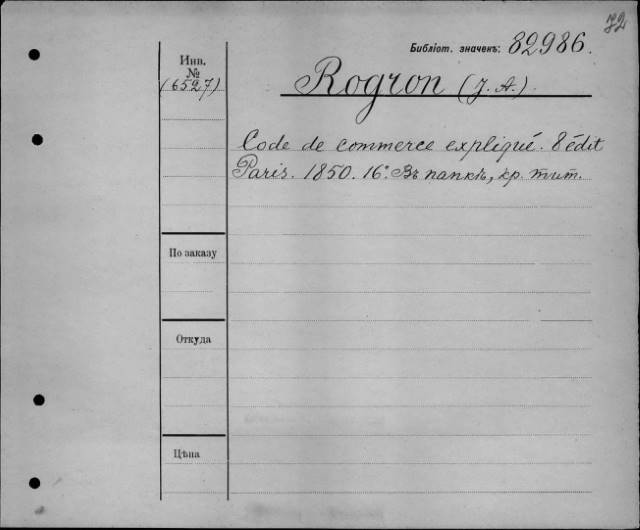 72
Библіот. значекъ: 82986.
Инв.
№
(6527)
Rogron (J. A.).
Code de commerce expliqué. 8 édit
Paris. 1850. 16°. Въ папкѣ, кр. тит.
По заказу
Откуда
Цѣна